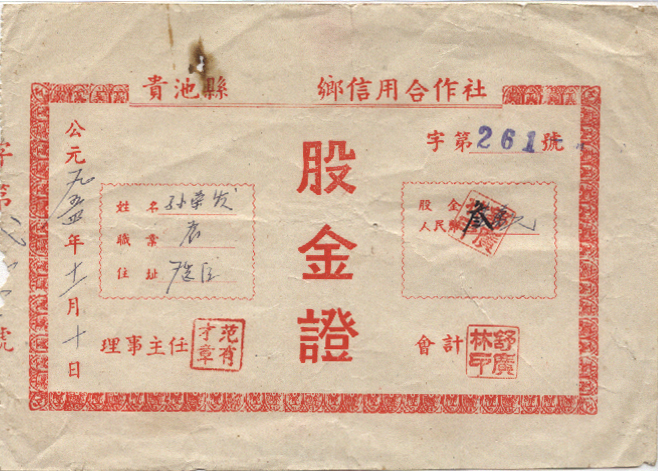 貴池縣 鄉信用合作社
字第261號
股金證
公元一九五四年十一月十日
姓名 孙荣发
職業 农
住址
股金
人民幣 叁萬元
理事主任 范有才章
會計 舒廣林印
字第
號